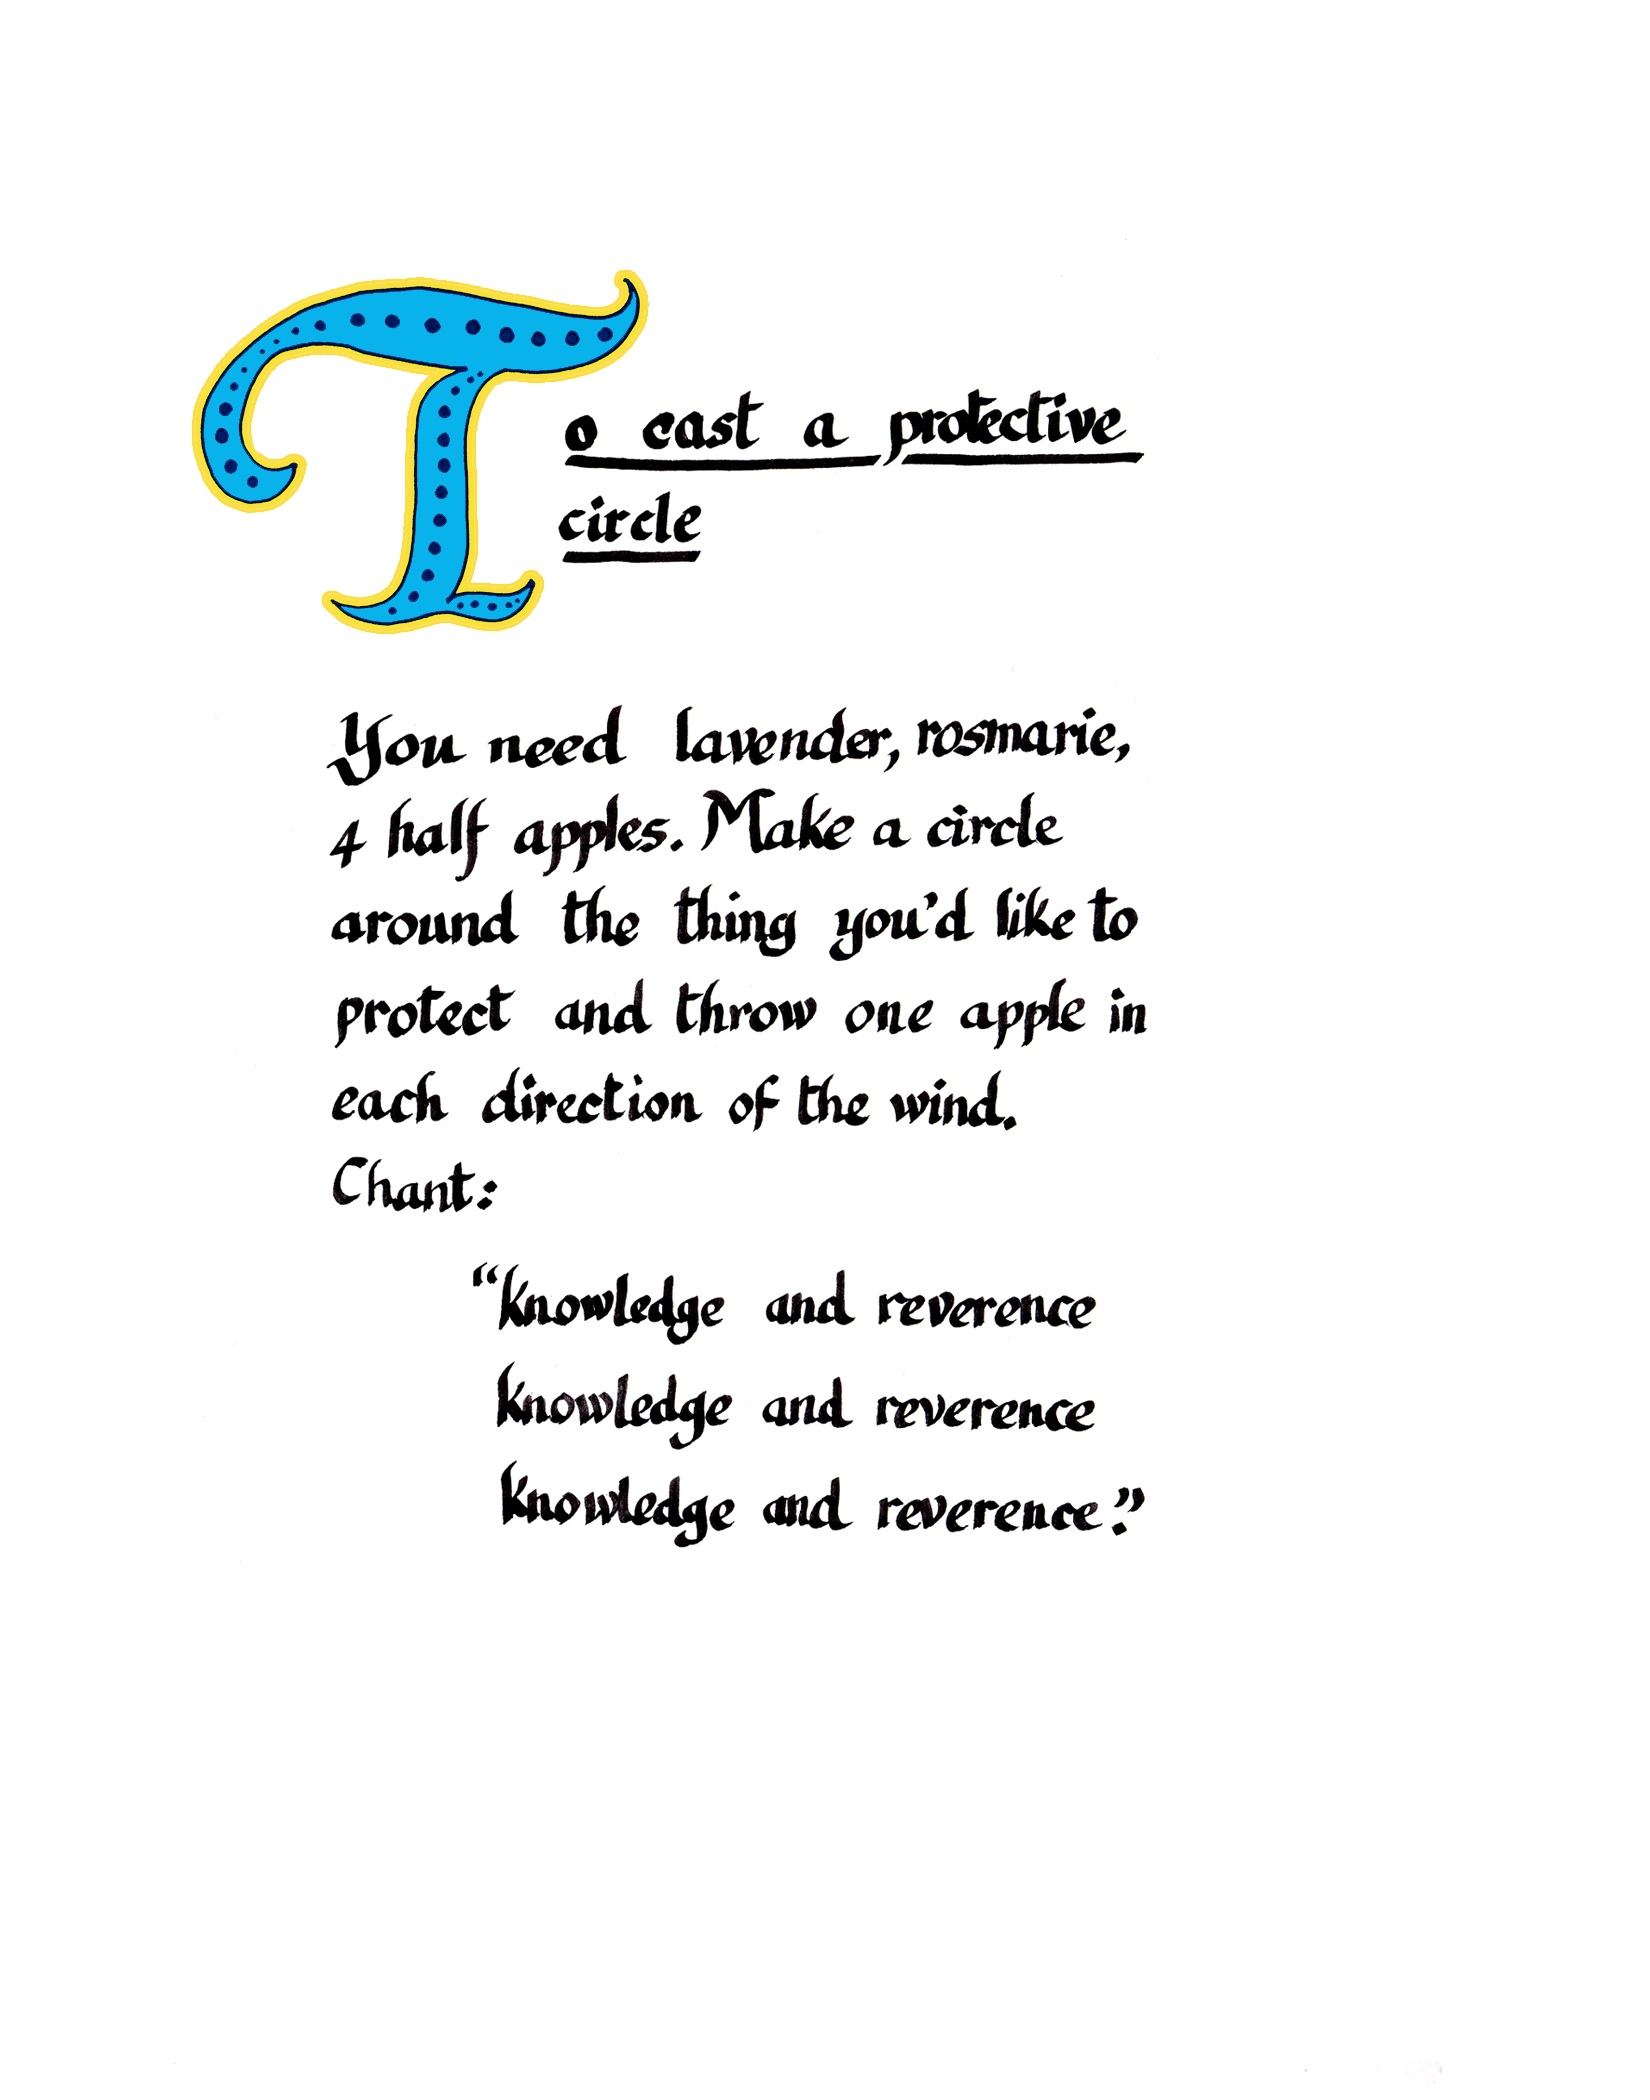 To cast a protective
circle
You need lavender, rosmarie,
4 half apples. Make a circle
around the thing you'd like to
protect and throw one apple in
each direction of the wind.
Chant:
"Knowledge and reverence
knowledge and reverence
knowledge and reverence."